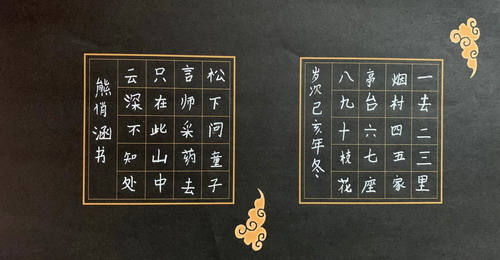 一去二三里
烟村四五家
亭台六七座
八九十枝花
岁次己亥年冬
松下问童子
言师采药去
只在此山中
云深不知处
熊俏涵书